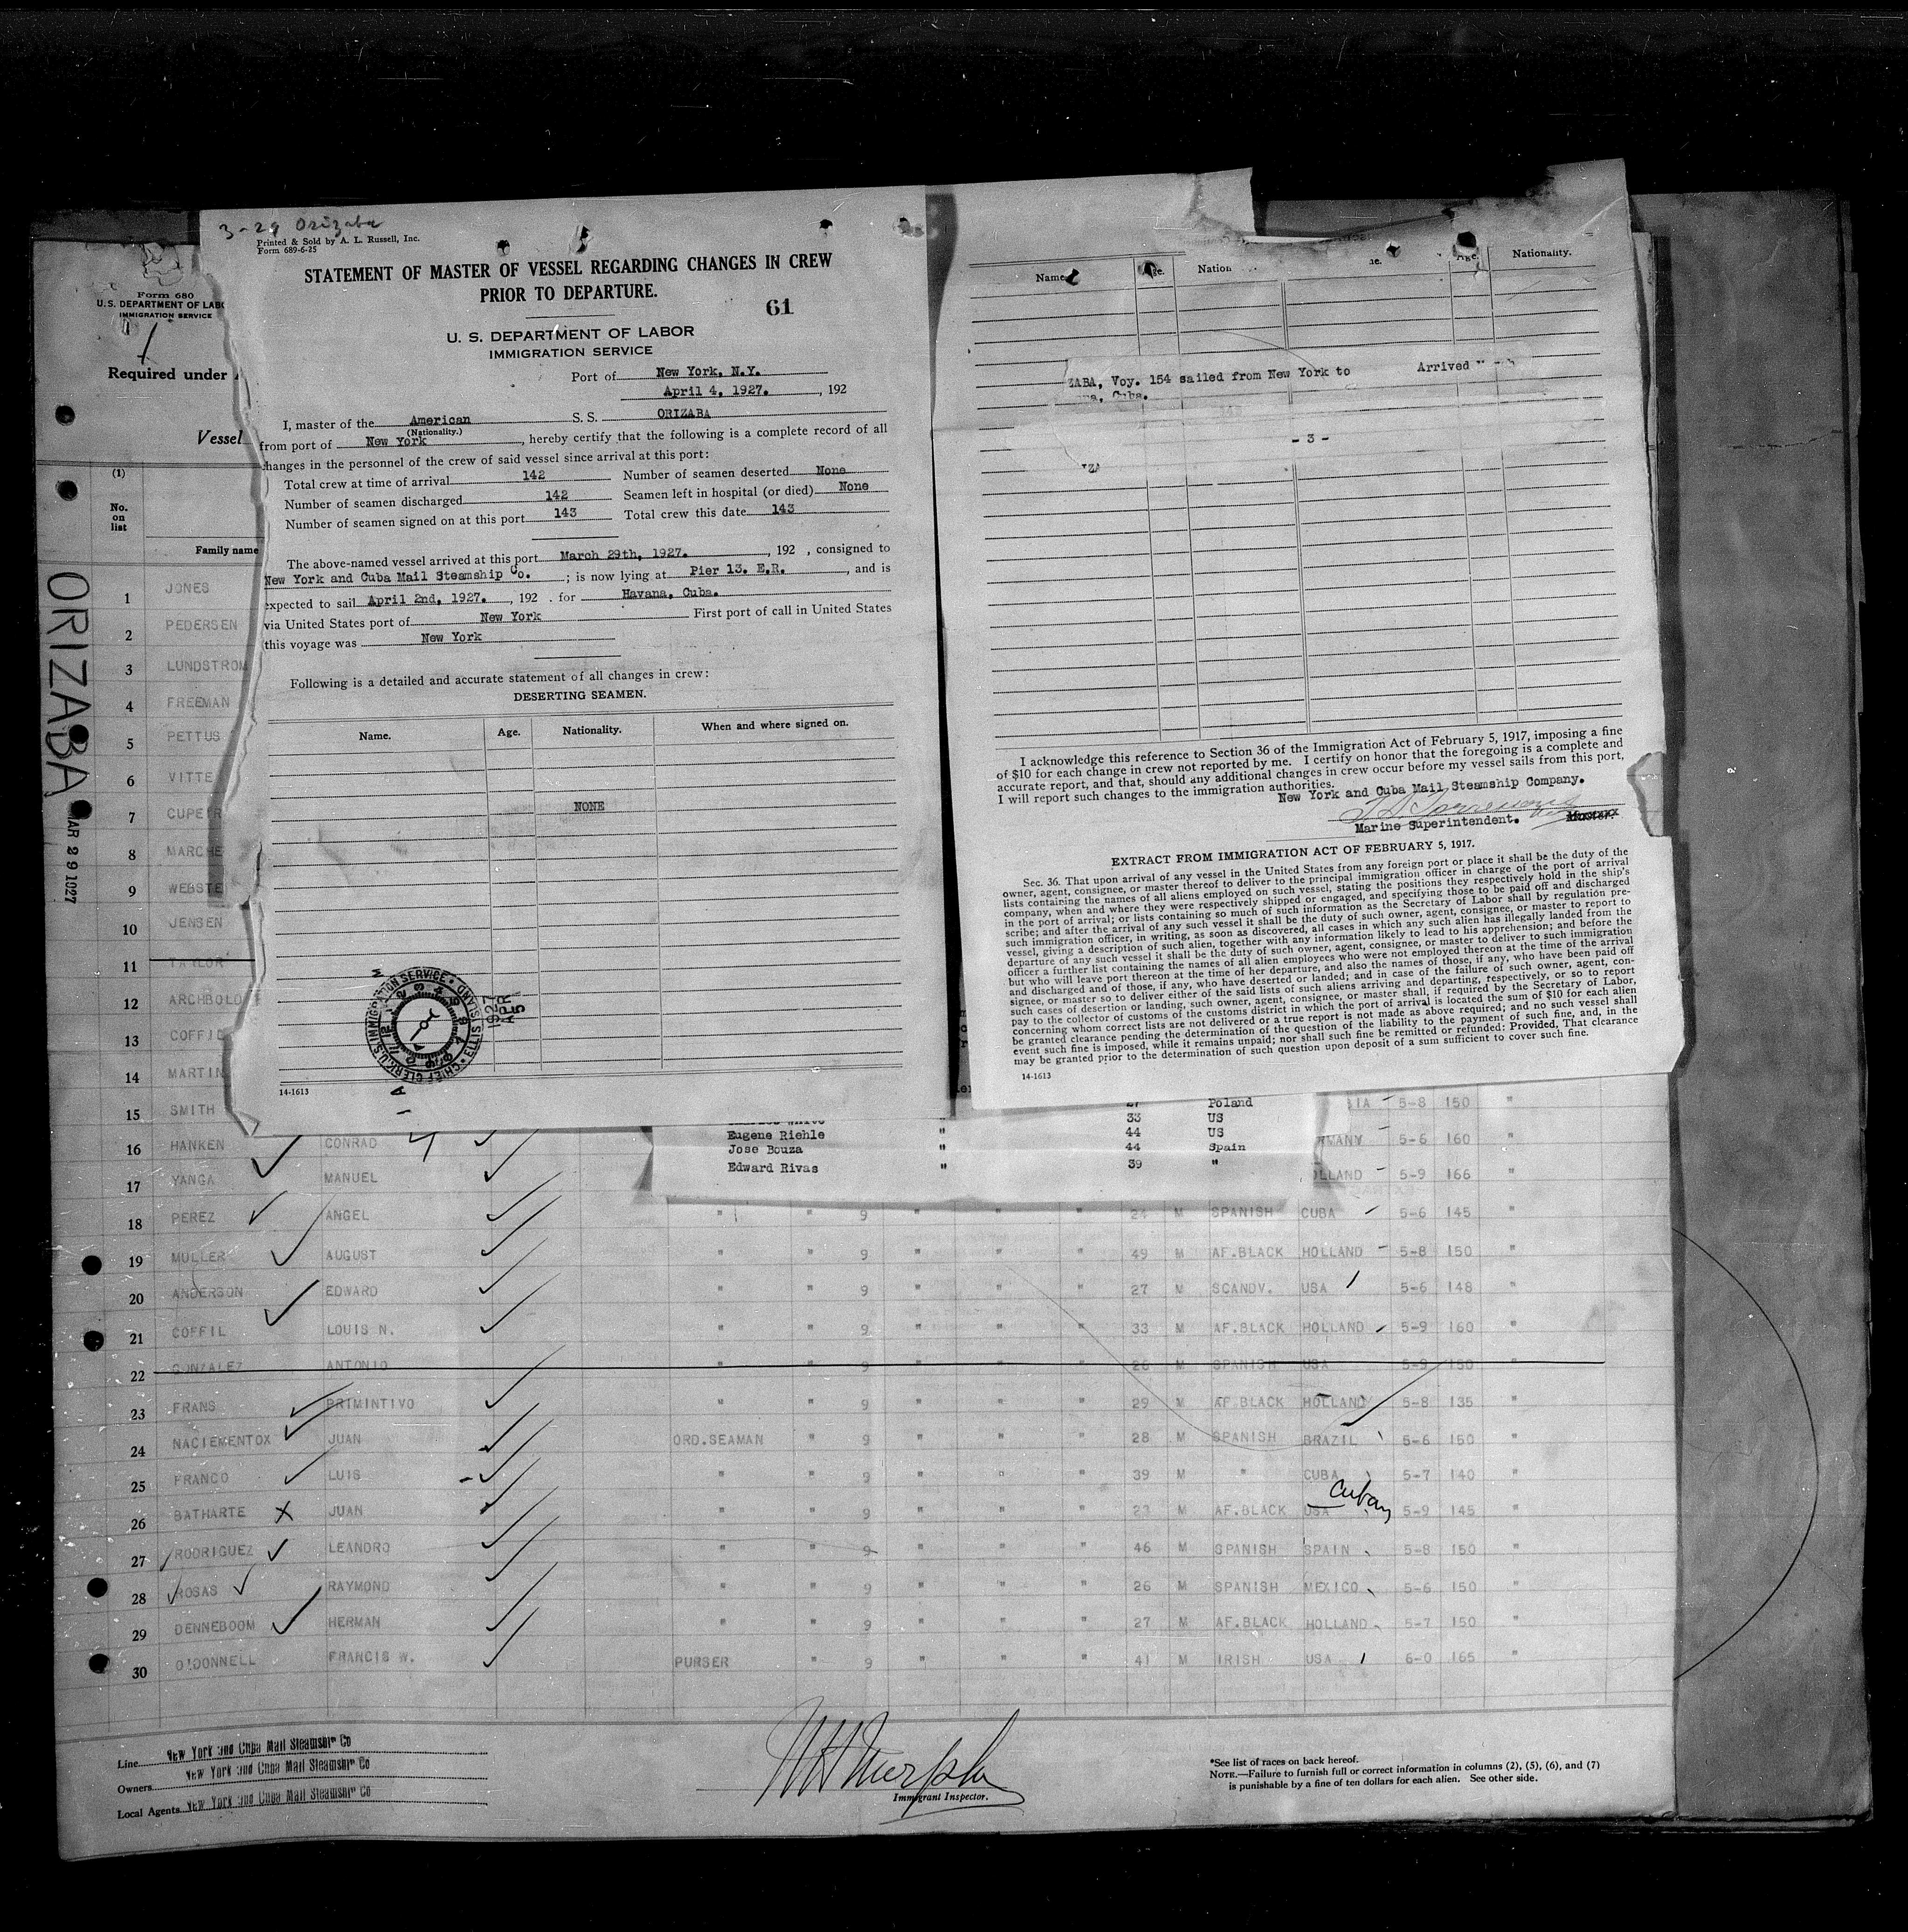 3-29 Orizaba
Printed & Sold by A. L. Russell, Inc.
Form 689-6-25
STATEMENT OF MASTER OF VESSEL REGARDING CHANGES IN CREW
PRIOR TO DEPARTURE.
61
U. S. DEPARTMENT OF LABOR
IMMIGRATION SERVICE
Port of New York, N.Y.
April 4, 1927. , 192
I, master of the American S. S. ORIZABA
(Nationality.)
from port of New York , hereby certify that the following is a complete record of all
changes in the personnel of the crew of said vessel since arrival at this port:
Total crew at time of arrival 142 Number of seamen deserted None
Number of seamen discharged 142 Seamen left in hospital (or died) None
Number of seamen signed on at this port 143 Total crew this date 143
The above-named vessel arrived at this port March 29th, 1927. , 192 , consigned to
New York and Cuba Mail Steamship Co. ; is now lying at Pier 13. E.R. , and is
expected to sail April 2nd, 1927. , 192 . for Havana, Cuba.
via United States port of New York First port of call in United States
this voyage was New York
Following is a detailed and accurate statement of all changes in crew:
DESERTING SEAMEN.
Name. Age. Nationality. When and where signed on.
NONE
U.S. IMMIGRATION SERVICE
CHIEF CLERK
ELLIS ISLAND
1927
APR
5
14-1613
Name Age. Nation Age. Nationality.
ZABA, Voy. 154 sailed from New York to Arrived
Cuba.
- 3 -
I acknowledge this reference to Section 36 of the Immigration Act of February 5, 1917, imposing a fine
of $10 for each change in crew not reported by me. I certify on honor that the foregoing is a complete and
accurate report, and that, should any additional changes in crew occur before my vessel sails from this port,
I will report such changes to the immigration authorities.
New York and Cuba Mail Steamship Company.
Marine Superintendent. Master.
EXTRACT FROM IMMIGRATION ACT OF FEBRUARY 5, 1917.
Sec. 36. That upon arrival of any vessel in the United States from any foreign port or place it shall be the duty of the
owner, agent, consignee, or master thereof to deliver to the principal immigration officer in charge of the port of arrival
lists containing the names of all aliens employed on such vessel, stating the positions they respectively hold in the ship's
company, when and where they were respectively shipped or engaged, and specifying those to be paid off and discharged
in the port of arrival; or lists containing so much of such information as the Secretary of Labor shall by regulation pre-
scribe; and after the arrival of any such vessel it shall be the duty of such owner, agent, consignee, or master to report to
such immigration officer, in writing, as soon as discovered, all cases in which any such alien has illegally landed from the
vessel, giving a description of such alien, together with any information likely to lead to his apprehension; and before the
departure of any such vessel it shall be the duty of such owner, agent, consignee, or master to deliver to such immigration
officer a further list containing the names of all alien employees who were not employed thereon at the time of the arrival
but who will leave port thereon at the time of her departure, and also the names of those, if any, who have been paid off
and discharged and of those, if any, who have deserted or landed; and in case of the failure of such owner, agent, con-
signee, or master so to deliver either of the said lists of such aliens arriving and departing, respectively, or so to report
such cases of desertion or landing, such owner, agent, consignee, or master shall, if required by the Secretary of Labor,
pay to the collector of customs of the customs district in which the port of arrival is located the sum of $10 for each alien
concerning whom correct lists are not delivered or a true report is not made as above required; and no such vessel shall
be granted clearance pending the determination of the question of the liability to the payment of such fine, and, in the
event such fine is imposed, while it remains unpaid; nor shall such fine be remitted or refunded: Provided, That clearance
may be granted prior to the determination of such question upon deposit of a sum sufficient to cover such fine.
14-1613
Form 680
U.S. DEPARTMENT OF LABO
IMMIGRATION SERVICE
Required under
Vessel
(1)
No.
on
list
Family name
ORIZABA
MAR 29 1927
1 JONES
2 PEDERSEN
3 LUNDSTROM
4 FREEMAN
5 PETTUS
6 VITTE
7 CUPEIR
8 MARCHE
9 WEBSTE
10 JENSEN
11 TAYLOR
12 ARCHBOLD
13 COFFIE
14 MARTIN
27 Poland
33 US
Eugene Riehle " 44 US
Jose Bouza " 44 Spain
Edward Rivas " 39 "
15 SMITH 5-8 150 "
16 HANKEN CONRAD RMANY 5-6 160 "
17 YANGA MANUEL OLLAND 5-9 166 "
18 PEREZ ANGEL " " 9 " " " 24 M SPANISH CUBA 5-6 145 "
19 MULLER AUGUST " " 9 " " " 49 M AF.BLACK HOLLAND 5-8 150 "
20 ANDERSON EDWARD " " 9 " " " 27 M SCANDV. USA 5-6 148 "
21 COFFIL LOUIS N. " " 9 " " " 33 M AF.BLACK HOLLAND 5-9 160 "
22 GONZALEZ ANTONIO " " 9 " " " 26 M SPANISH USA 5-9 150 "
23 FRANS PRIMINTIVO " " 9 " " " 29 M AF.BLACK HOLLAND 5-8 135 "
24 NACIEMENTOX JUAN ORD.SEAMAN " 9 " " " 28 M SPANISH BRAZIL 5-6 150 "
25 FRANCO LUIS " " 9 " " " 39 M " CUBA 5-7 140 "
Cuban
26 BATHARTE X JUAN " " 9 " " " 23 M AF.BLACK USA 5-9 145 "
27 RODRIGUEZ LEANDRO " " 9 " " " 46 M SPANISH SPAIN 5-8 150 "
28 ROSAS RAYMOND " " 9 " " " 26 M SPANISH MEXICO 5-6 150 "
29 DENNEBOOM HERMAN " " 9 " " " 27 M AF.BLACK HOLLAND 5-7 150 "
30 O'DONNELL FRANCIS W. PURSER " 9 " " " 41 M IRISH USA 6-0 165 "
Line New York and Cuba Mail Steamship Co
Owners New York and Cuba Mail Steamship Co
Local Agents New York and Cuba Mail Steamship Co
Murphy
Immigrant Inspector.
*See list of races on back hereof.
NOTE.—Failure to furnish full or correct information in columns (2), (5), (6), and (7)
is punishable by a fine of ten dollars for each alien. See other side.